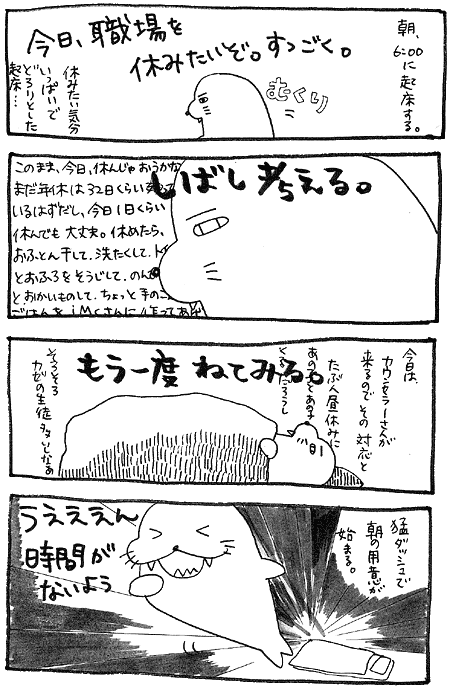 朝、
6:00
に起床する。
今日、職場を
休みたいぞ。すっごく。
むくり
休みたい気分
いっぱいで
どろりとした
起床…
しばし考える。
このまま、今日、休んじゃおうかな
まだ年休は32日くらい残って
いるはずだし、今日1日くらい
休んでも大丈夫。休めたら、
おふとん干して、洗たくして、トイ
とおふろをそうじして、のん
とおかいものして、ちょっと手のこ
ごはんを
もう一度ねてみる。
今日は、
カウンセラーさんが
来るのでその対応と
たぶん昼休みに
あの子とあの子
くるだろうし
そろそろ
カゼの生徒多いしなあ
猛ダッシュで
朝の用意が
始まる。
うえええん
時間が
ないよう